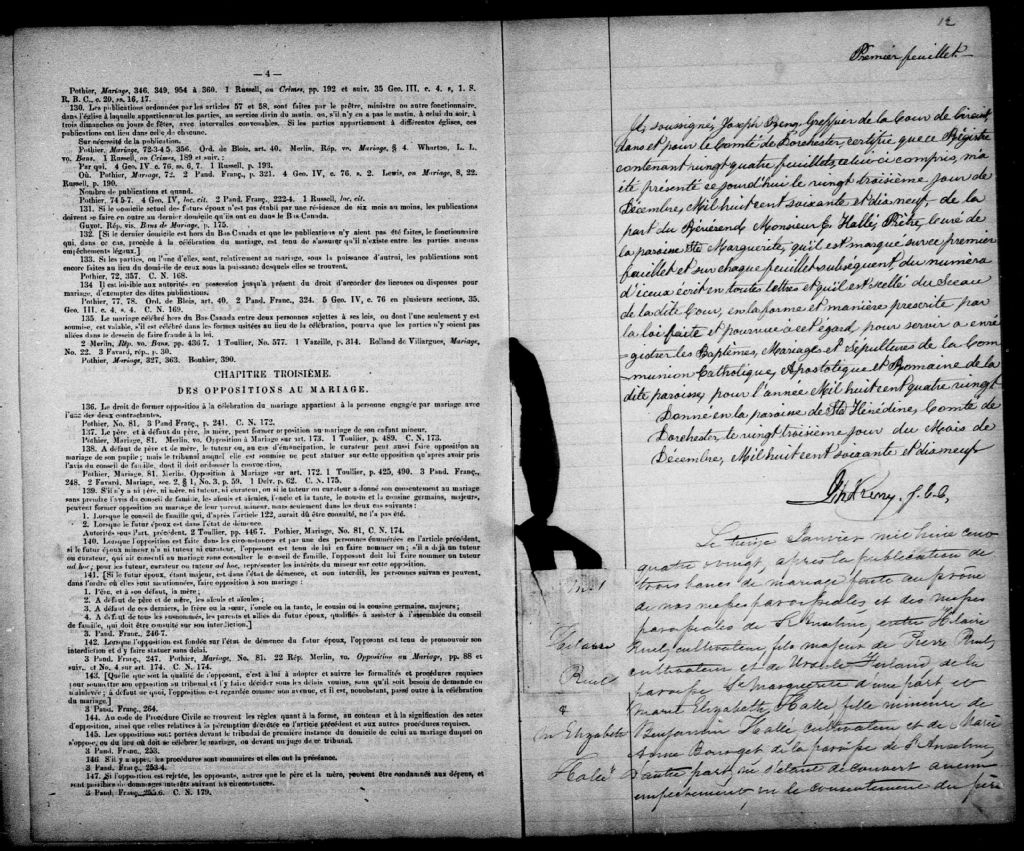 — 4 —
Pothier, Mariage, 346, 349, 954 à 360. 1 Russell, on Crimes, pp. 192 et suiv. 35 Geo. III, c. 4, s. 1. S.
R. B. C., c. 20, ss. 16, 17.
130. Les publications ordonnées par les articles 57 et 58, sont faites par le prêtre, ministre ou autre fonctionnaire,
dans l'église à laquelle appartiennent les parties, au service divin du matin, ou, s'il n'y en a pas le matin, à celui du soir, à
trois dimanches ou jours de fêtes, avec intervalles convenables. Si les parties appartiennent à différentes églises, ces
publications ont lieu dans celle de chacune.
Sur nécessité de la publication.
Pothier, Mariage, 72-3-4-5, 356. Ord. de Blois, art. 40. Merlin, Rép. vo. Mariage, § 4. Wharton, L. L.
vo. Bans. 1 Russell, on Crimes, 189 et suiv.:
Par qui. 4 Geo. IV, c. 76, ss. 6, 7. 1 Russell, p. 193.
Où. Pothier, Mariage, 72. 2 Pand. Franç., p. 321. 4 Geo. IV, c. 76, s. 2. Lewis, on Mariage, 8, 22.
Russell, p. 190.
Nombre de publications et quand.
Pothier, 74-5-7. 4 Geo. IV, loc. cit. 2 Pand. Franç., 222-4. 1 Russell, loc. cit.
131. Si le domicile actuel des futurs époux n'est pas établi par une résidence de six mois au moins, les publications
doivent se faire en outre au dernier domicile qu'ils ont eu dans le Bas-Canada.
Guyot, Rép. vis. Bans de Mariage, p. 175.
132. [Si le dernier domicile est hors du Bas-Canada et que les publications n'y aient pas été faites, le fonctionnaire
qui, dans ce cas, procède à la célébration du mariage, est tenu de s'assurer qu'il n'existe entre les parties aucuns
empêchements légaux.]
133. Si les parties, ou l'une d'elles, sont, relativement au mariage, sous la puissance d'autrui, les publications sont
encore faites au lieu du domicile de ceux sous la puissance desquels elles se trouvent.
Pothier, 72, 357. C. N. 168.
134 Il est loisible aux autorités en possession jusqu'à présent du droit d'accorder des licences ou dispenses pour
mariage, d'exempter des dites publications.
Pothier, 77, 78. Ord. de Blois, art. 40. 2 Pand. Franç., 324. 5 Geo. IV, c. 76 en plusieurs sections, 35.
Geo. III. c. 4, s. 4. C. N. 169.
135. Le mariage célébré hors du Bas-Canada entre deux personnes sujettes à ses lois, ou dont l'une seulement y est
soumise, est valable, s'il est célébré dans les formes usitées au lieu de la célébration, pourvu que les parties n'y soient pas
allées dans le dessein de faire fraude à la loi.
2 Merlin, Rép. vo. Bans, pp. 436-7. 1 Toullier, No. 577. 1 Vazeille, p. 314. Rolland de Villargues, Mariage,
No. 22. 3 Favard, rép., p. 30.
Pothier, Mariage, 327, 363. Bouhier, 390.
CHAPITRE TROISIÈME.
DES OPPOSITIONS AU MARIAGE.
136. Le droit de former opposition à la célébration du mariage appartient à la personne engagée par mariage avec
l'une des deux contractantes.
Pothier, No. 81. 3 Pand Franç., p. 241. C. N. 172.
137. Le père, et à défaut du père, la mère, peut former opposition au mariage de son enfant mineur.
Pothier, Mariage, 81. Merlin, vo. Opposition à Mariage sur art. 173. 1 Toullier, p. 489. C. N. 173.
138. A défaut de père et de mère, le tuteur ou, au cas d'émancipation, le curateur peut aussi former opposition au
mariage de son pupille; mais le tribunal auquel elle est soumise ne peut statuer sur cette opposition qu'après avoir pris
l'avis du conseil de famille, dont il doit ordonner la convocation.
Pothier, Mariage, 81. Merlin, Opposition à Mariage sur art. 172. 1 Toullier, p. 425, 490. 3 Pand. Franç.,
248. 2 Favard, Mariage, sec. 2, § 1, No. 3, p. 59. 1 Delv. p. 62. C. N. 175.
139. S'il n'y a ni père, ni mère, ni tuteur, ni curateur, ou si le tuteur ou curateur a donné son consentement au mariage
sans prendre l'avis du conseil de famille, les aïeuls et aïeules, l'oncle et la tante, le cousin et la cousine germains, majeurs,
peuvent former opposition au mariage de leur parent mineur, mais seulement dans les deux cas suivants:
1. Lorsque le conseil de famille qui, d'après l'article 122, aurait dû être consulté, ne l'a pas été.
2. Lorsque le futur époux est dans l'état de démence.
Autorités sous l'art. précédent. 2 Toullier, pp. 446-7. Pothier, Mariage, No. 81, C. N. 174.
140. Lorsque l'opposition est faite dans les circonstances et par une des personnes énumérées en l'article précédent,
si le futur époux mineur n'a ni tuteur ni curateur, l'opposant est tenu de lui en faire nommer un; s'il a déjà un tuteur
ou curateur, qui ait consenti au mariage sans consulter le conseil de famille, l'opposant doit lui faire nommer un tuteur
ad hoc; pour les tuteur, curateur ou tuteur ad hoc, représenter les intérêts du mineur sur cette opposition.
141. [Si le futur époux, étant majeur, est dans l'état de démence, et non interdit, les personnes suivantes peuvent,
dans l'ordre où elles sont mentionnées, faire opposition à son mariage:
1. Père, et à son défaut, la mère;
2. A défaut de père et de mère, les aïeuls et aïeules;
3. A défaut de ces derniers, le frère ou la sœur, l'oncle ou la tante, le cousin ou la cousine germains, majeurs;
4. A défaut de tous les susnommés, les parents et alliés du futur époux, qualifiés à assister à l'assemblée du conseil
de famille, qui doit être consulté sur son interdiction.]
3. Pand. Franç., 246-7.
142. Lorsque l'opposition est fondée sur l'état de démence du futur époux, l'opposant est tenu de promouvoir son
interdiction et d'y faire statuer sans délai.
3 Pand. Franç., 247. Pothier, Mariage, No. 81. 22 Rép. Merlin, vo. Opposition au Mariage, pp. 88 et
suiv. et No. 4 sur art. 174. C. N. 174.
143. [Quelle que soit la qualité de l'opposant, c'est à lui à adopter et suivre les formalités et procédures requises
pour soumettre son opposition au tribunal et l'y faire décider sous les délais voulus, sans qu'il soit besoin de demande en
mainlevée; à défaut de quoi, l'opposition est regardée comme non avenue, et il est, nonobstant, passé outre à la célébration
du mariage.]
3 Pand. Franç., 264.
144. Au code de Procédure Civile se trouvent les règles quant à la forme, au contenu et à la signification des actes
d'opposition, ainsi que celles relatives à la péremption décrétée en l'article précédent et aux autres procédures requises.
145. Les oppositions sont portées devant le tribunal de première instance du domicile de celui au mariage duquel on
s'oppose, ou du lieu où doit se célébrer le mariage, ou devant un juge de ce tribunal.
3 Pand. Franç., 253.
146 S'il y a appel, les procédures sont sommaires et elles ont la préséance.
3 Pand. Franç., 253-4.
147. Si l'opposition est rejetée, les opposants, autres que le père et la mère, peuvent être condamnés aux dépens, et
sont passibles de dommages-intérêts suivant les circonstances.
3 Pand. Franç., 255-6. C. N. 179.
12
Premier feuillet
Je, soussigné, Joseph Remy, Greffier de la Cour de Circuit
dans et pour le Comté de Dorchester, certifie que ce Régistre
contenant vingt quatre feuillets, celui-ci compris, m'a
été présenté ce jourd'hui le vingt troisième jour de
Décembre, Mil huit cent soixante et dix neuf, de la
part du Révérend Monsieur E. Hallé, Prêtre, Curé de
la paroisse Ste Marguerite, qu'il est marqué sur ce premier
feuillet et sur chaque feuillet subséquent, du numéro
d'iceux écrit en toutes lettres et qu'il est scellé du Sceau
de la dite Cour, en la forme et manières prescrite par
la loi faite et pourvue à cet égard, pour servir à enré
gistrer les Baptêmes, Mariages et Sépultures de la Com
munion Catholique, Apostolique et Romaine de la
dite paroisse, pour l'année Mil huit cent quatre vingt
Donné en la paroisse de Ste Hénédine, Comté de
Dorchester, le vingt troisième jour du Mois de
Décembre, Mil huit cent soixante et dix neuf
Jh Remy, g.c.c.
Hilaire
Ruel
&
M Elizabeth
Hallé
Le treize Janvier mil huit cent
quatre vingt, après la publication de
trois bancs de mariage faite au prône
de nos messes paroissiales et des messes
paroissiales de St Anselme, entre Hilaire
Ruel, cultivateur, fils majeur de Pierre Ruel,
cultivateur et de Ursule Ferland de la
paroisse Ste Marguerite d'une part et
Marie Elizabeth Hallé fille mineure de
Benjamin Hallé cultivateur et de Marie
Anne de la paroisse de St Anselme
d'autre part, ne s'étant découvert aucun
empêchement, vu le consentement du père